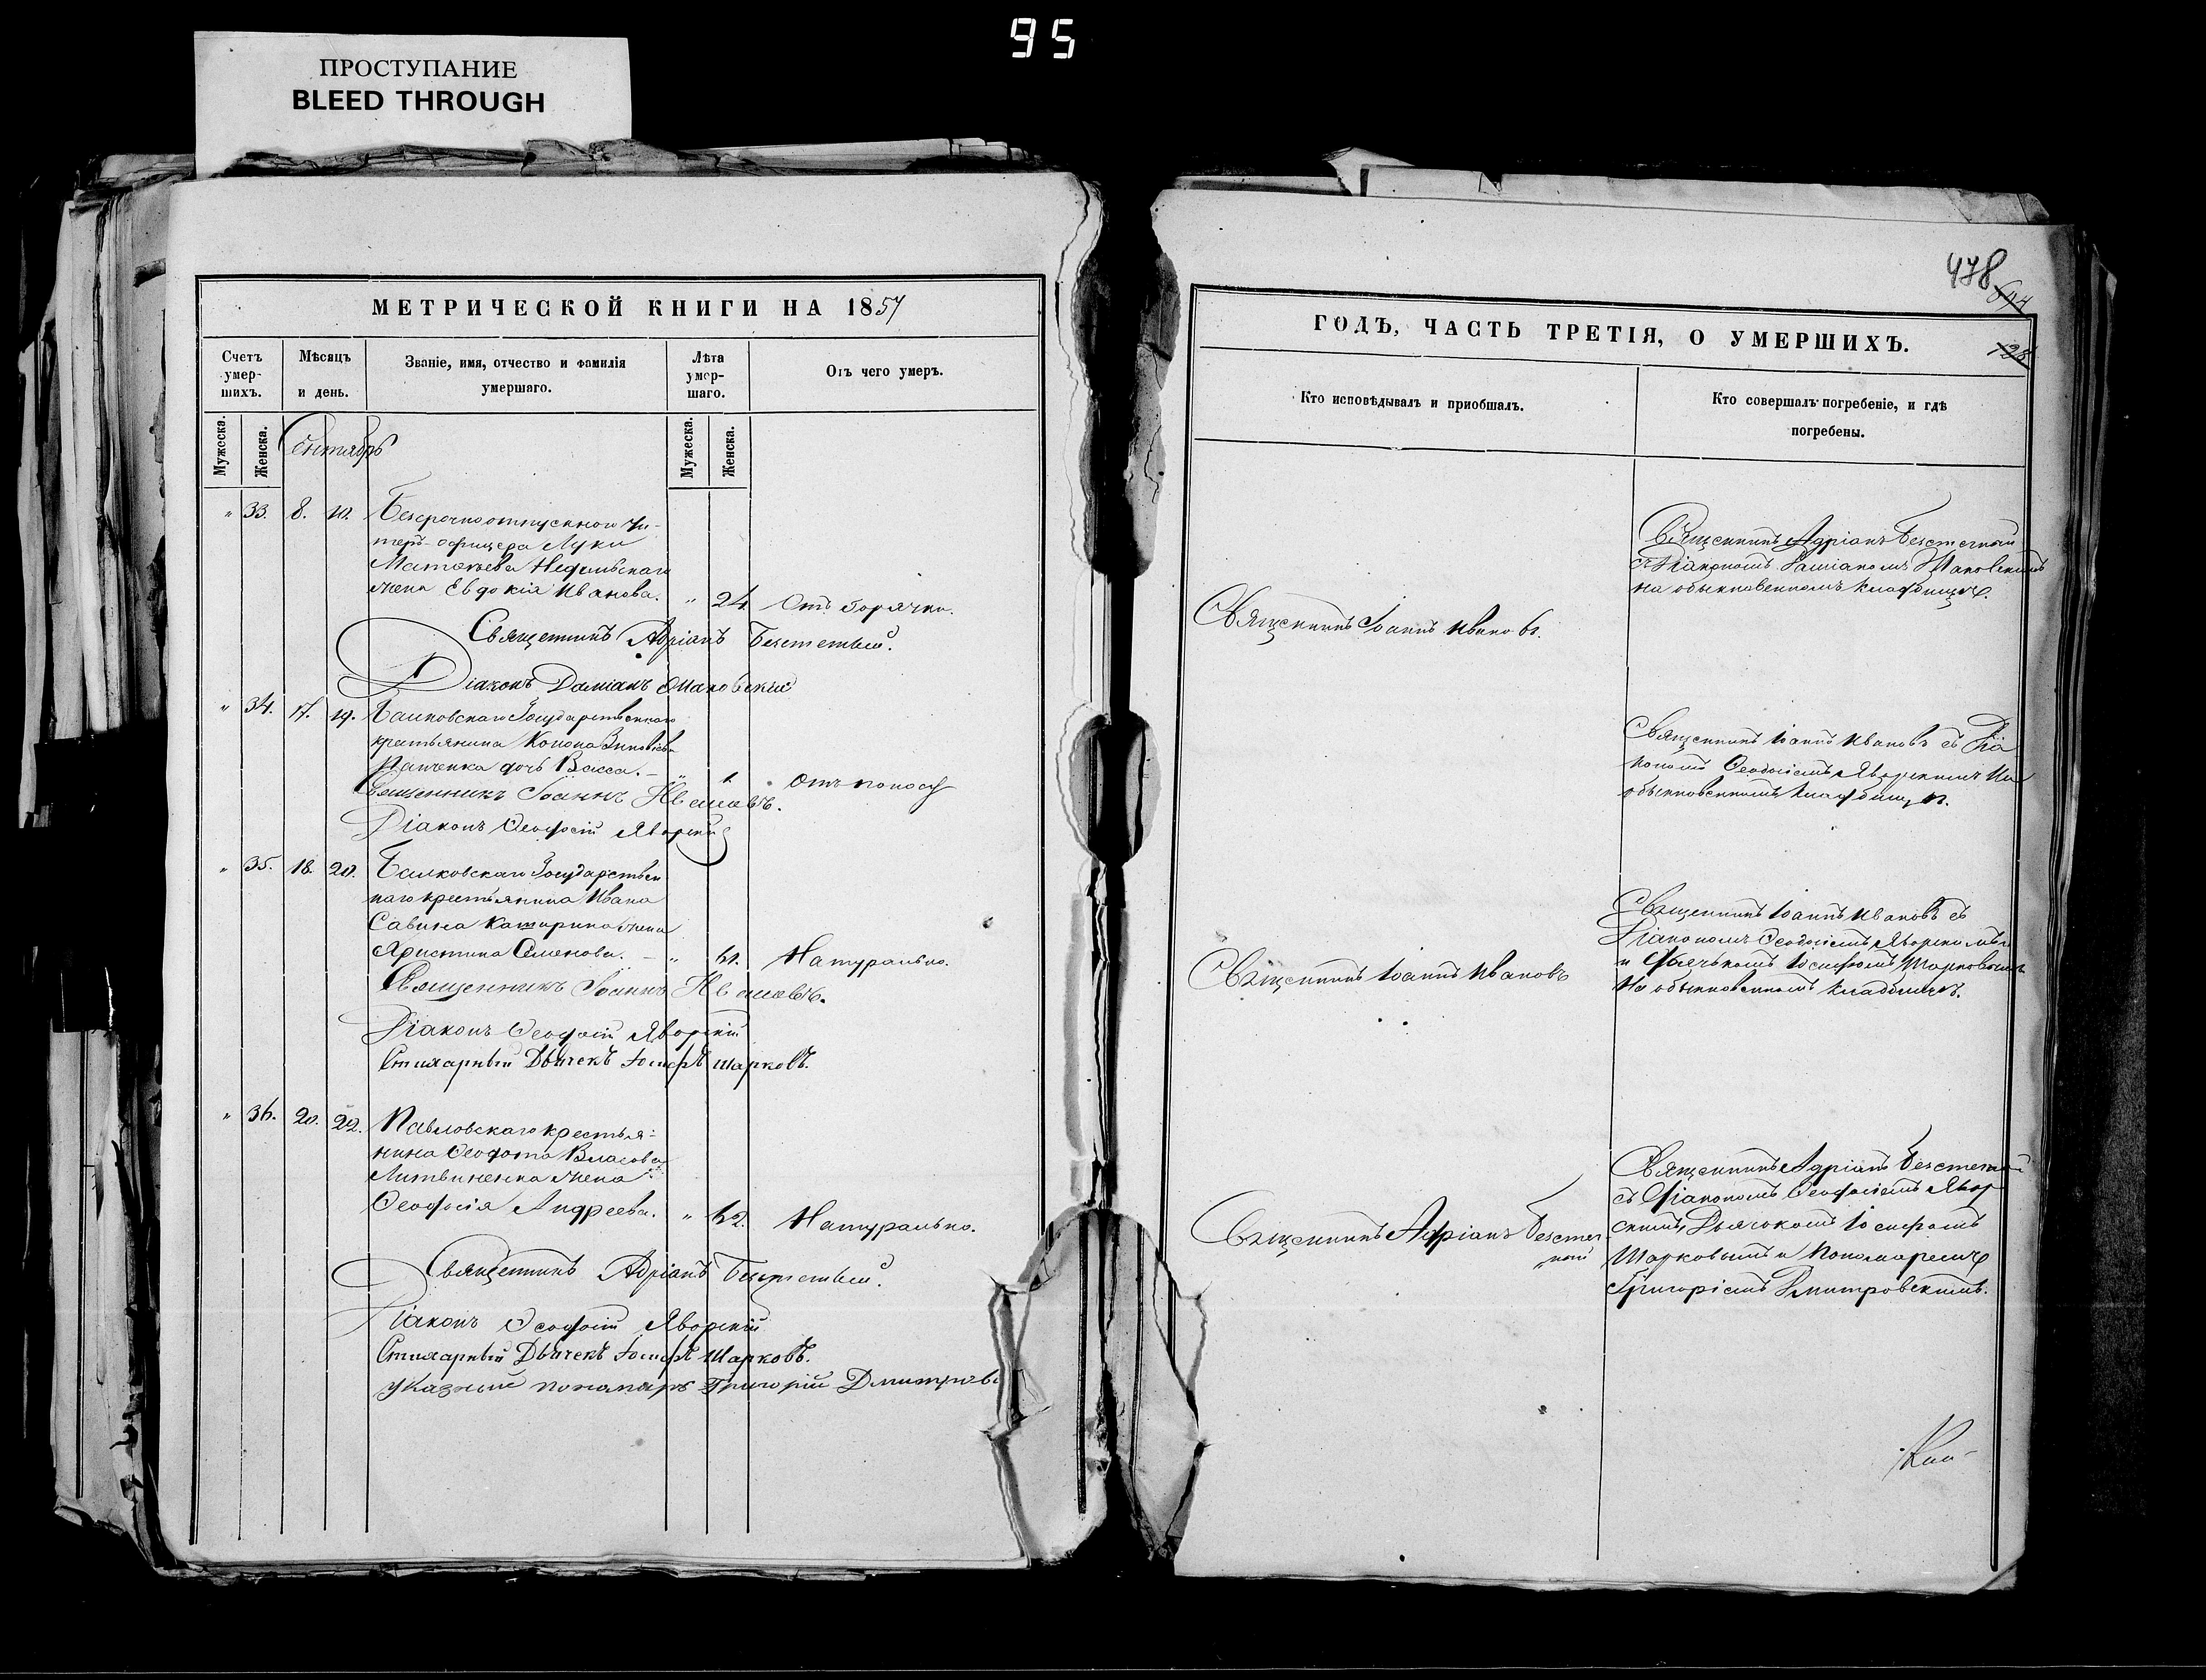 95
ПРОСТУПАНИЕ
BLEED THROUGH
МЕТРИЧЕСКОЙ КНИГИ НА 1857
Счетъ умер-шихъ.
Мѣсяцъ и день.
Званіе, имя, отчество и фамилія умершаго.
Лѣта умер-шаго.
Отъ чего умеръ.
Мужеска.
Женска.
Сентябрь
Мужеска.
Женска.
" 33. 8. 10. Безсрочноотпускнои Ун-
теръ-офицера Луки
Матвѣева
жена Евдокія Иванова. " 24. Отъ горячки.
Священникъ Адріанъ Безсметный.
Діаконъ Даміанъ
" 34. 17. 19. Балковскаго Государственнаго
крестьянина Конона Зиновіева
дочь Васса. — " 1. Отъ поносу
Священникъ Іоаннъ Ивановъ.
Діаконъ Ѳеодосій Яворскій
" 35. 18. 20. Балковскаго Государствен
наго крестьянина Ивана
Савина жена
Христина Семенова. — " 61. Натурально.
Священникъ Іоаннъ Ивановъ.
Діаконъ Ѳеодосій Яворскій
Стихарный Дьячекъ Іосифъ Шарковъ.
" 36. 20. 22. Павловскаго крестья-
нина Ѳеодота Власова
Литвиненка жена
Ѳеодосія Андреева. " 62. Натурально.
Священникъ Адріанъ Безсметный.
Діаконъ Ѳеодосій Яворскій
Стихарный Дьячекъ Іосифъ Шарковъ.
Указный пономарь Григорій
478
ГОДЪ, ЧАСТЬ ТРЕТІЯ, О УМЕРШИХЪ.
Кто исповѣдывалъ и пріобщалъ.
Кто совершалъ погребеніе, и гдѣ
погребены.
Священникъ Іоаннъ Ивановъ.
Священникъ Адріанъ Безсметный
съ Діакономъ Даміаномъ
на обыкновенномъ кладбищѣ.
Священникъ Іоаннъ Ивановъ съ Діа
кономъ Ѳеодосіемъ Яворскимъ На
обыкновенномъ кладбищѣ.
Священникъ Іоаннъ Ивановъ
Священникъ Іоаннъ Ивановъ съ
Діакономъ Ѳеодосіемъ Яворскимъ
и Дьячкомъ Іосифомъ Шарковымъ
На обыкновенномъ кладбищѣ.
Священникъ Адріанъ Безсмет
ный
Священникъ Адріанъ Безсметный
съ Діакономъ Ѳеодосіемъ Явор
скимъ, Дьячкомъ Іосифомъ
Шарковымъ и Пономаремъ
Григоріемъ Дмитровскимъ.